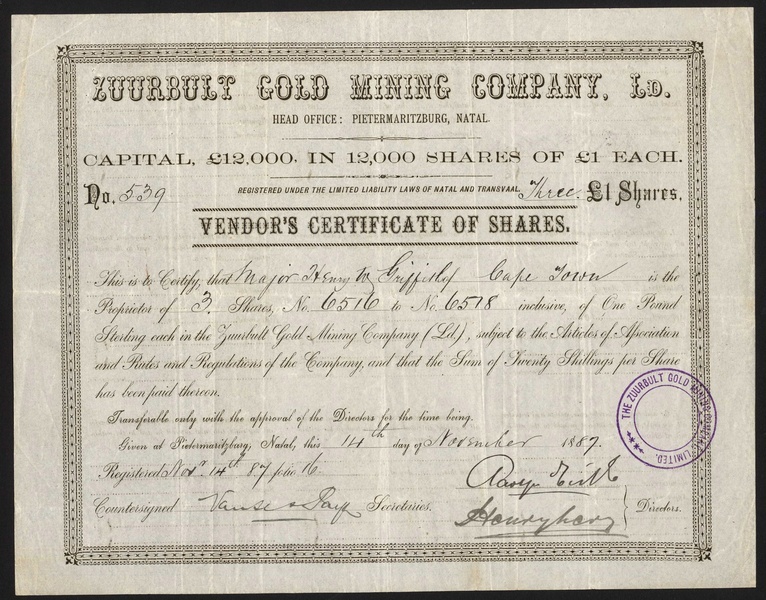 ZUURBULT GOLD MINING COMPANY, LD.
HEAD OFFICE: PIETERMARITZBURG, NATAL.
CAPITAL, £12,000, IN 12,000 SHARES OF £1 EACH.
REGISTERED UNDER THE LIMITED LIABILITY LAWS OF NATAL AND TRANSVAAL.
No. 539 Three £1 Shares.
VENDOR'S CERTIFICATE OF SHARES.
This is to Certify, that Major Henry W Griffith of Cape Town is the
Proprietor of 3. Shares, No. 6516 to No. 6518 inclusive, of One Pound
Sterling each in the Zuurbult Gold Mining Company (Ld), subject to the Articles of Association
and Rules and Regulations of the Company, and that the Sum of Twenty Shillings per Share
has been paid thereon.
Transferable only with the approval of the Directors for the time being.
Given at Pietermaritzburg, Natal, this 14th day of November 1887.
Registered Novr. 14th 87 folio 16.
Countersigned Secretaries.
Directors.
THE ZUURBULT GOLD MINING
LIMITED.